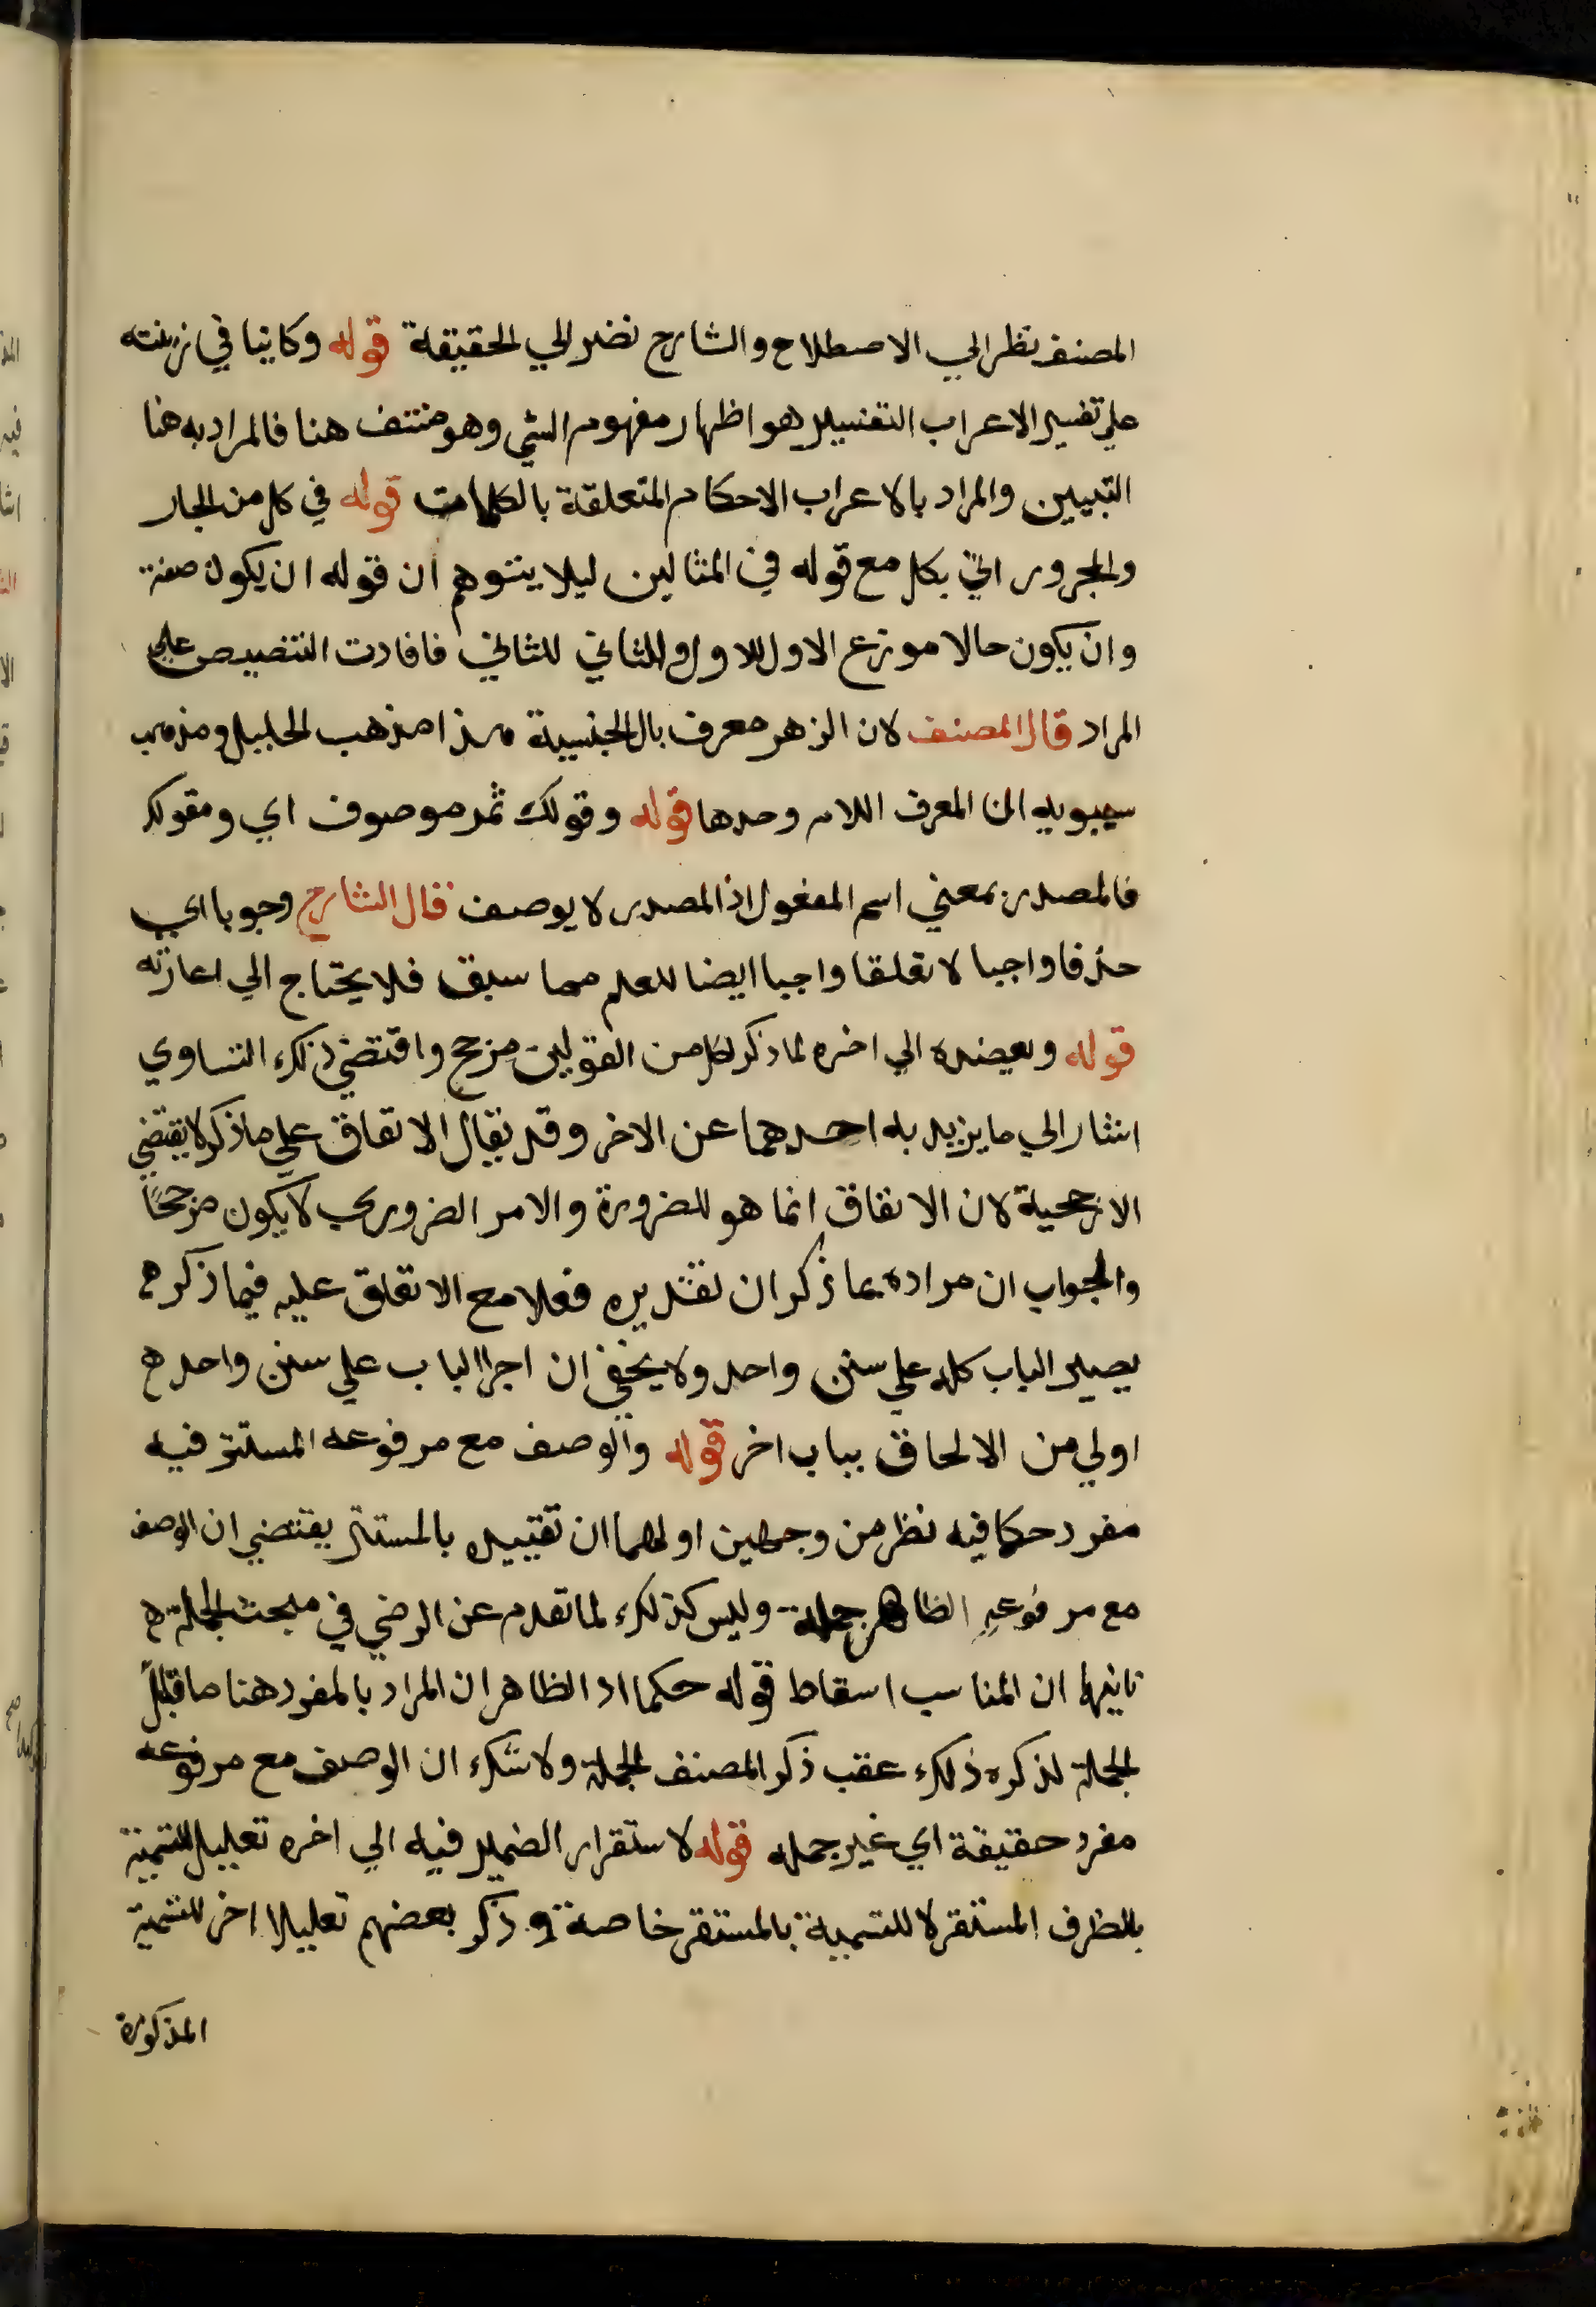 المصنف نظر الي الاصطلاح والشارح نضر الي الحقيقة قوله وكاينا في زينته
علي تفسير الاعراب التفسير هو اظهار مفهوم الشي وهو منتف هنا فالمراد به هنا
التبيين والمراد بالاعراب الاحكام المتعلقة بالكلمات قوله في كل من الجار
والمجرور اتي بكل مع قوله في المثالين ليلا يتوهم ان قوله ان يكون صفة
وان يكون حالا موزع الاول للاول والثاني للثاني فافادت التنصيص علي
المراد قال المصنف لان الزهر معرف بال الجنسية هذا مذهب الخليل ومذهب
سيبويه ان المعرف اللام وحدها قوله وقولك ثمر موصوف اي ومقولك
فالمصدر بمعني اسم المفعول اذ المصدر لا يوصف قال الشارح وجوبا اي
حذفا واجبا لا تعلقا واجبا ايضا للعلم مما سبق فلا يحتاج الي اعادته
قوله وبعضده الي اخره لما ذكر لكل من القولين مرجح واقتضي ذلك التساوي
اشار الي ما يزيد به احدهما عن الاخر وقد يقال الاتفاق علي ما ذكر لا يقتضي
الارجحية لان الاتفاق انما هو للضرورة والامر الضروري لا يكون مرجحًا
والجواب ان مراده بما ذكر ان تقديره فعلا مع الاتفاق عليه فيما ذكر ه
يصير الباب كله علي سنن واحد ولا يخفي ان اجرا الباب علي سنن واحد ه
اولي من الالحاق بباب اخر قوله والوصف مع مرفوعه المستتر فيه
مفرد حكما فيه نظر من وجهين اولهما ان تقييده بالمستتر يقتضي ان الوصف
مع مرفوعهِ الظاهر جملة وليس كذلك لما تقدم عن الرضي في مبحث الجملة ه
ثانيهما ان المناسب اسقاط قوله حكما اذ الظاهر ان المراد بالمفرد هنا ما قابل
الجملة لذكره ذلك عقب ذكر المصنف الجملة ولا شك ان الوصف مع مرفوعه
مفرد حقيقة اي غير جمله قوله لاستقرار الضمير فيه الي اخره تعليل للتسمية
بالظرف المستقر لا للتسمية بالمستقر خاصة وذكر بعضهم تعليلا اخر للتسمية
المذكورة